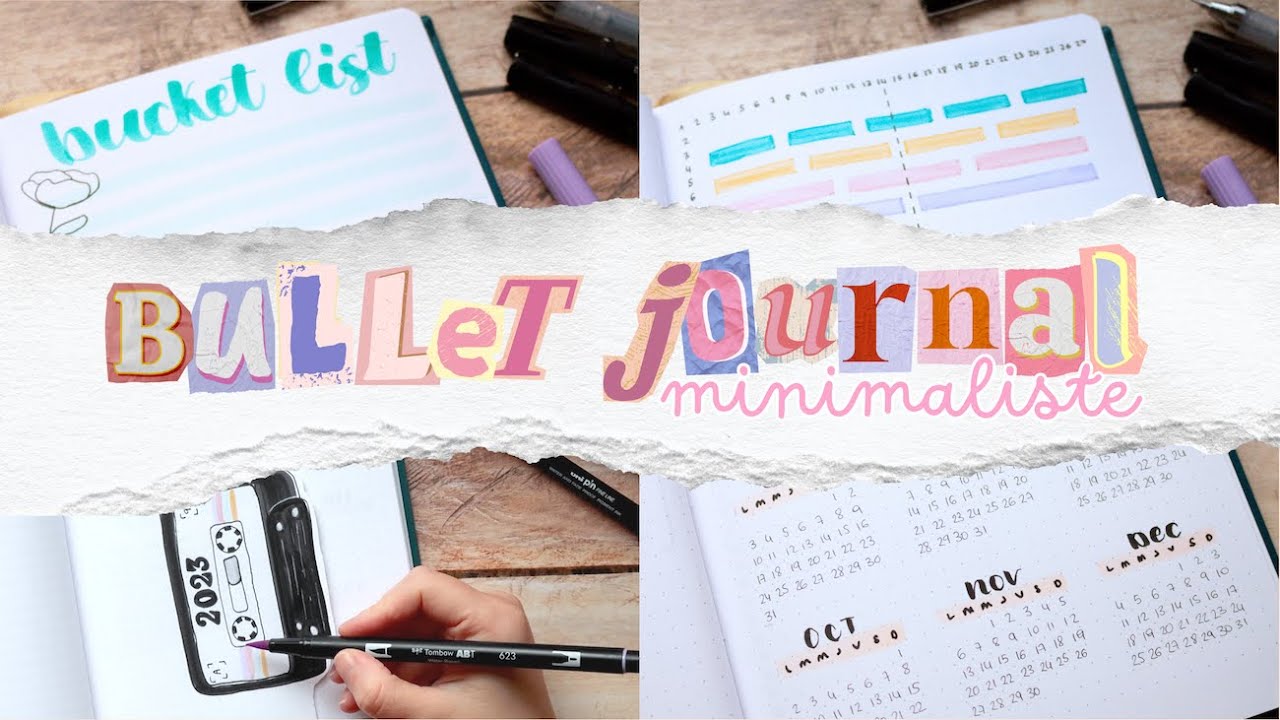 bucket list
1 2 3 4 5 6 7 8 9 10 11 12 13 14 15 16 17 18 19 20 21 22 23 24 25 26
2
3
4
5
6
BULLET JOURNAL
minimaliste
2023
[A]
uni pin FINE LINE
Tombow ABT 623
L M M J
1 2
3 4 5 6 7 8 9
10 11 12 13 14 15 16
17 18 19 20 21 22 23
24 25 26 27 28 29 30
31
7 8 9 10 11 12 13
14 15 16 17 18 19 20
21 22 23 24 25 26 27
28 29 30 31
11 12 13 14 15 16 17
18 19 20 21 22 23 24
25 26 27 28 29 30
OCT
L M M J V S D
1
2 3 4 5 6 7 8
9 10 11 12 13 14 15
NOV
L M M J V S D
1 2 3 4 5
6 7 8 9 10 11 12
13 14 15 16 17 18 19
20 21 22 23 24 25 26
27 28 29 30
DEC
L M M J V S D
1 2 3
4 5 6 7 8 9 10
11 12 13 14 15 16 17
18 19 20 21 22 23 24
25 26 27 28 29 30 31